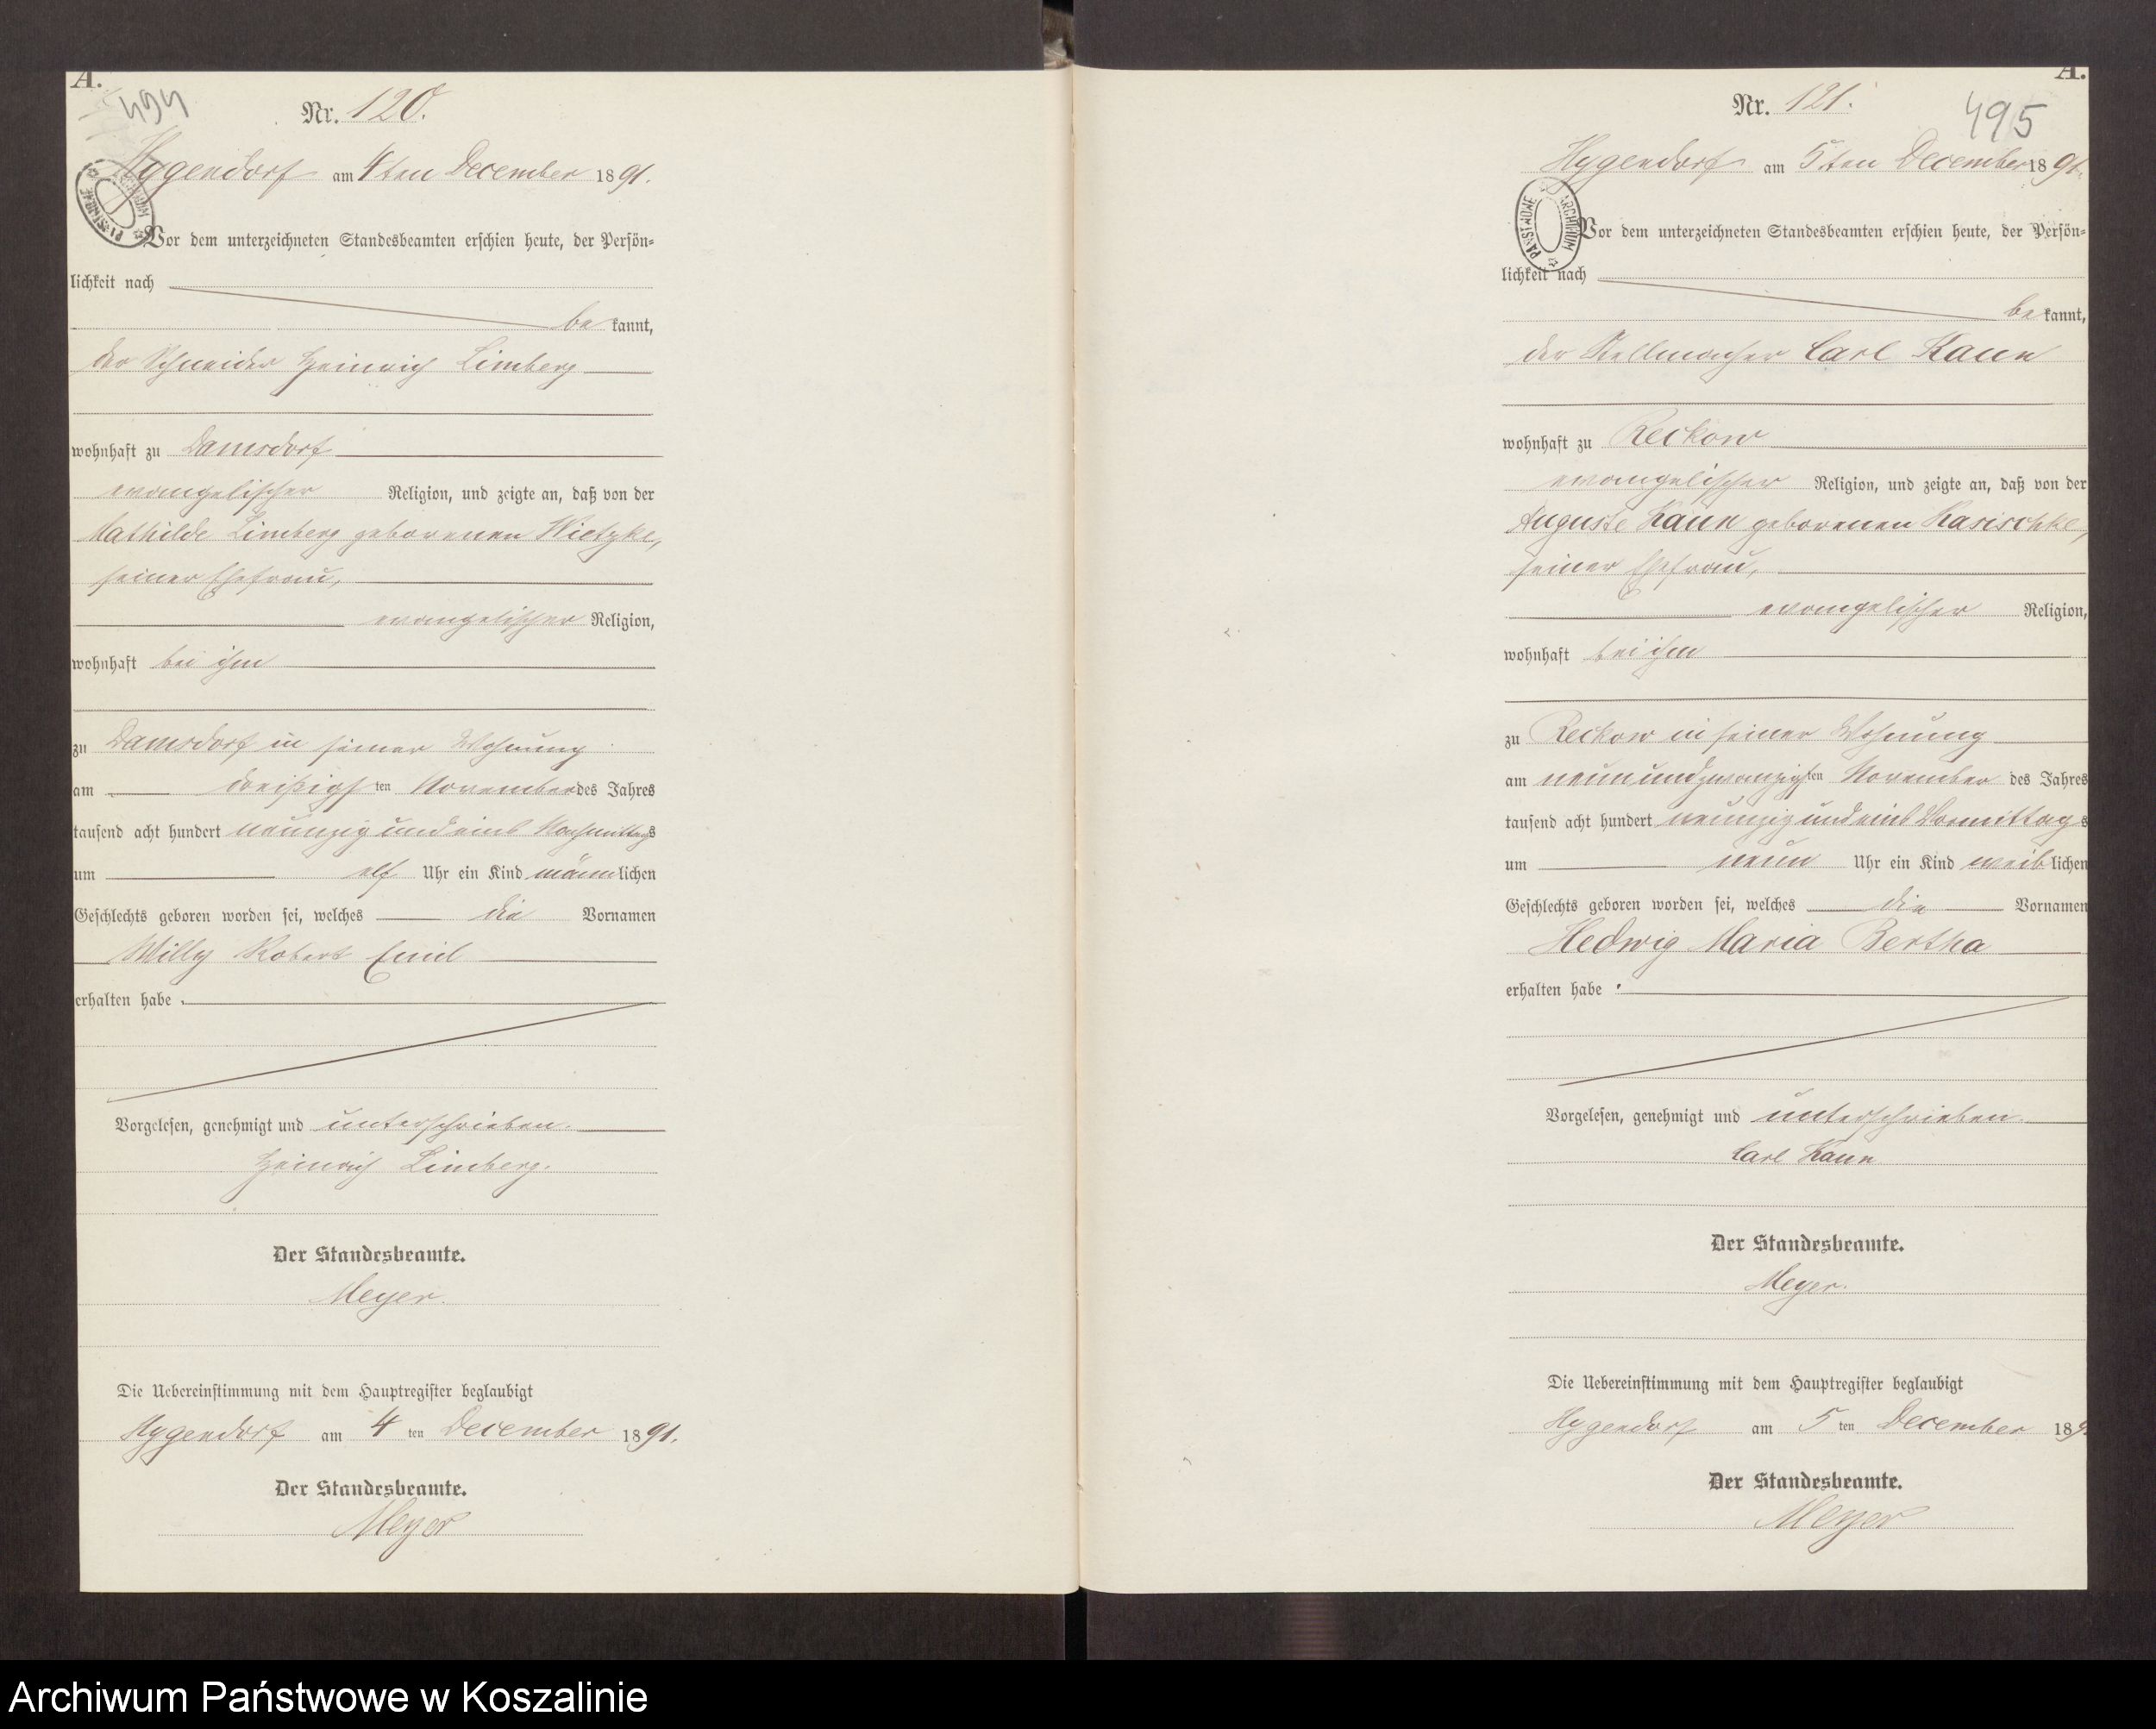 A.
494
Nr. 120.
Hygendorf am 4ten December 1891.
PAŃSTWOWE ARCHIWUM
Vor dem unterzeichneten Standesbeamten erschien heute, der Persön-
lichkeit nach
be kannt,
der Schneider Heinrich Limberg
wohnhaft zu Damsdorf
evangelischer Religion, und zeigte an, daß von der
Mathilde Limberg geborenen Wietzke,
seiner Ehefrau,
evangelischer Religion,
wohnhaft bei ihm
zu Damsdorf in seiner Wohnung
am dreißigsten November des Jahres
tausend acht hundert neunzig und eins Nachmittags
um elf Uhr ein Kind männlichen
Geschlechts geboren worden sei, welches die Vornamen
Willy Robert Emil
erhalten habe.
Vorgelesen, genehmigt und unterschrieben.
Heinrich Limberg.
Der Standesbeamte.
Meyer.
Die Uebereinstimmung mit dem Hauptregister beglaubigt
Hygendorf am 4 ten December 1891.
Der Standesbeamte.
Meyer
A.
495
Nr. 121.
Hygendorf am 5ten December 1891.
PAŃSTWOWE ARCHIWUM
Vor dem unterzeichneten Standesbeamten erschien heute, der Persön-
lichkeit nach
be kannt,
der Stellmacher Carl Kaun
wohnhaft zu Reckow
evangelischer Religion, und zeigte an, daß von der
Auguste Kaun geborenen Karischke,
seiner Ehefrau,
evangelischer Religion,
wohnhaft bei ihm
zu Reckow in seiner Wohnung
am neunundzwanzigsten November des Jahres
tausend acht hundert neunzig und eins Vormittags
um neun Uhr ein Kind weiblichen
Geschlechts geboren worden sei, welches die Vornamen
Hedwig Maria Bertha
erhalten habe.
Vorgelesen, genehmigt und unterschrieben.
Carl Kaun
Der Standesbeamte.
Meyer.
Die Uebereinstimmung mit dem Hauptregister beglaubigt
Hygendorf am 5 ten December 189
Der Standesbeamte.
Meyer
Archiwum Państwowe w Koszalinie